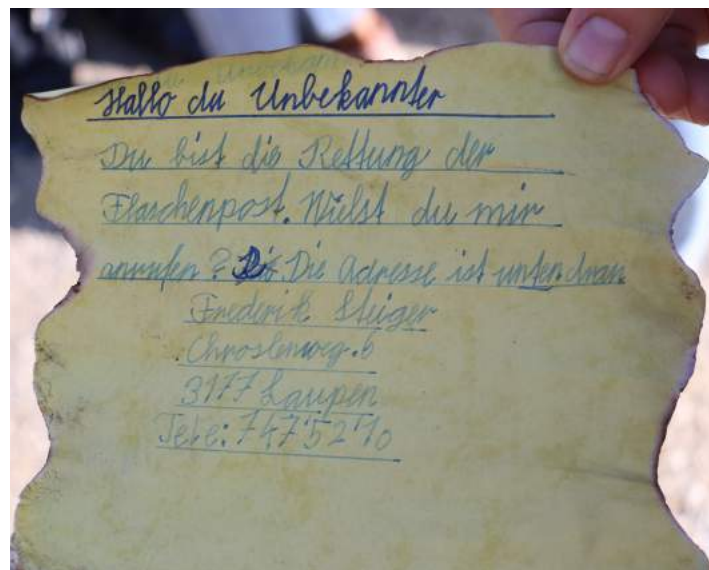 Hallo du Unbekannter
Du bist die Rettung der
Flaschenpost. Wilst du mir
anrufen? Die Adresse ist unten dran
Frederik Steiger
Chroslenweg. 6
3177 Laupen
Tele: 747'52'10